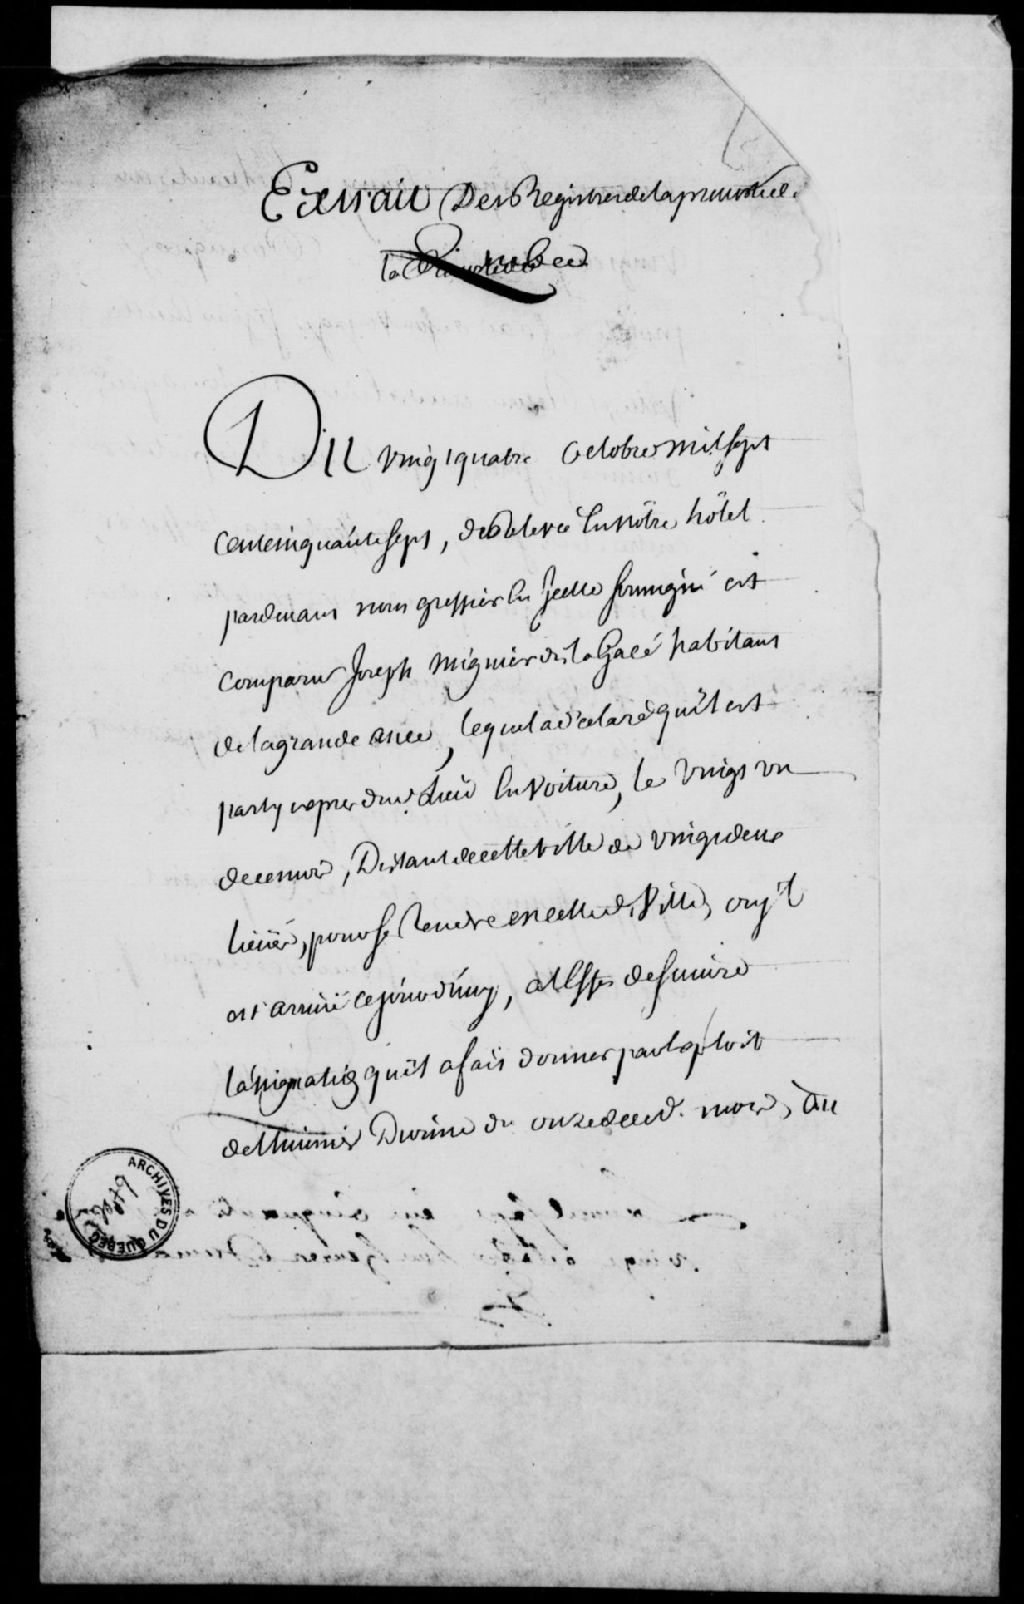 Extrait Des Registres de la prevosté de
Quebec
Du vingt quatre Octobre mil sept
cent cinquante sept, de relevée En nôtre hôtel
pardevant nous greffier En Icelle soussigné est
comparu Joseph mignier dit la Gacé habitant
de la grande ance, lequel a déclaré quil est
party exprès dud. Lieu En Voiture, le Vingt un
de ce mois, Distant de cette ville de vingt deux
lieües, pour se Rendre en cette d. Ville, ou jl
est arrivé ce jourdhuy, affin de suivre
lassignation quil a fait donner par exploit
de Lhuissier Dionne du onze de ce d. mois, au
ARCHIVES DU QUEBEC